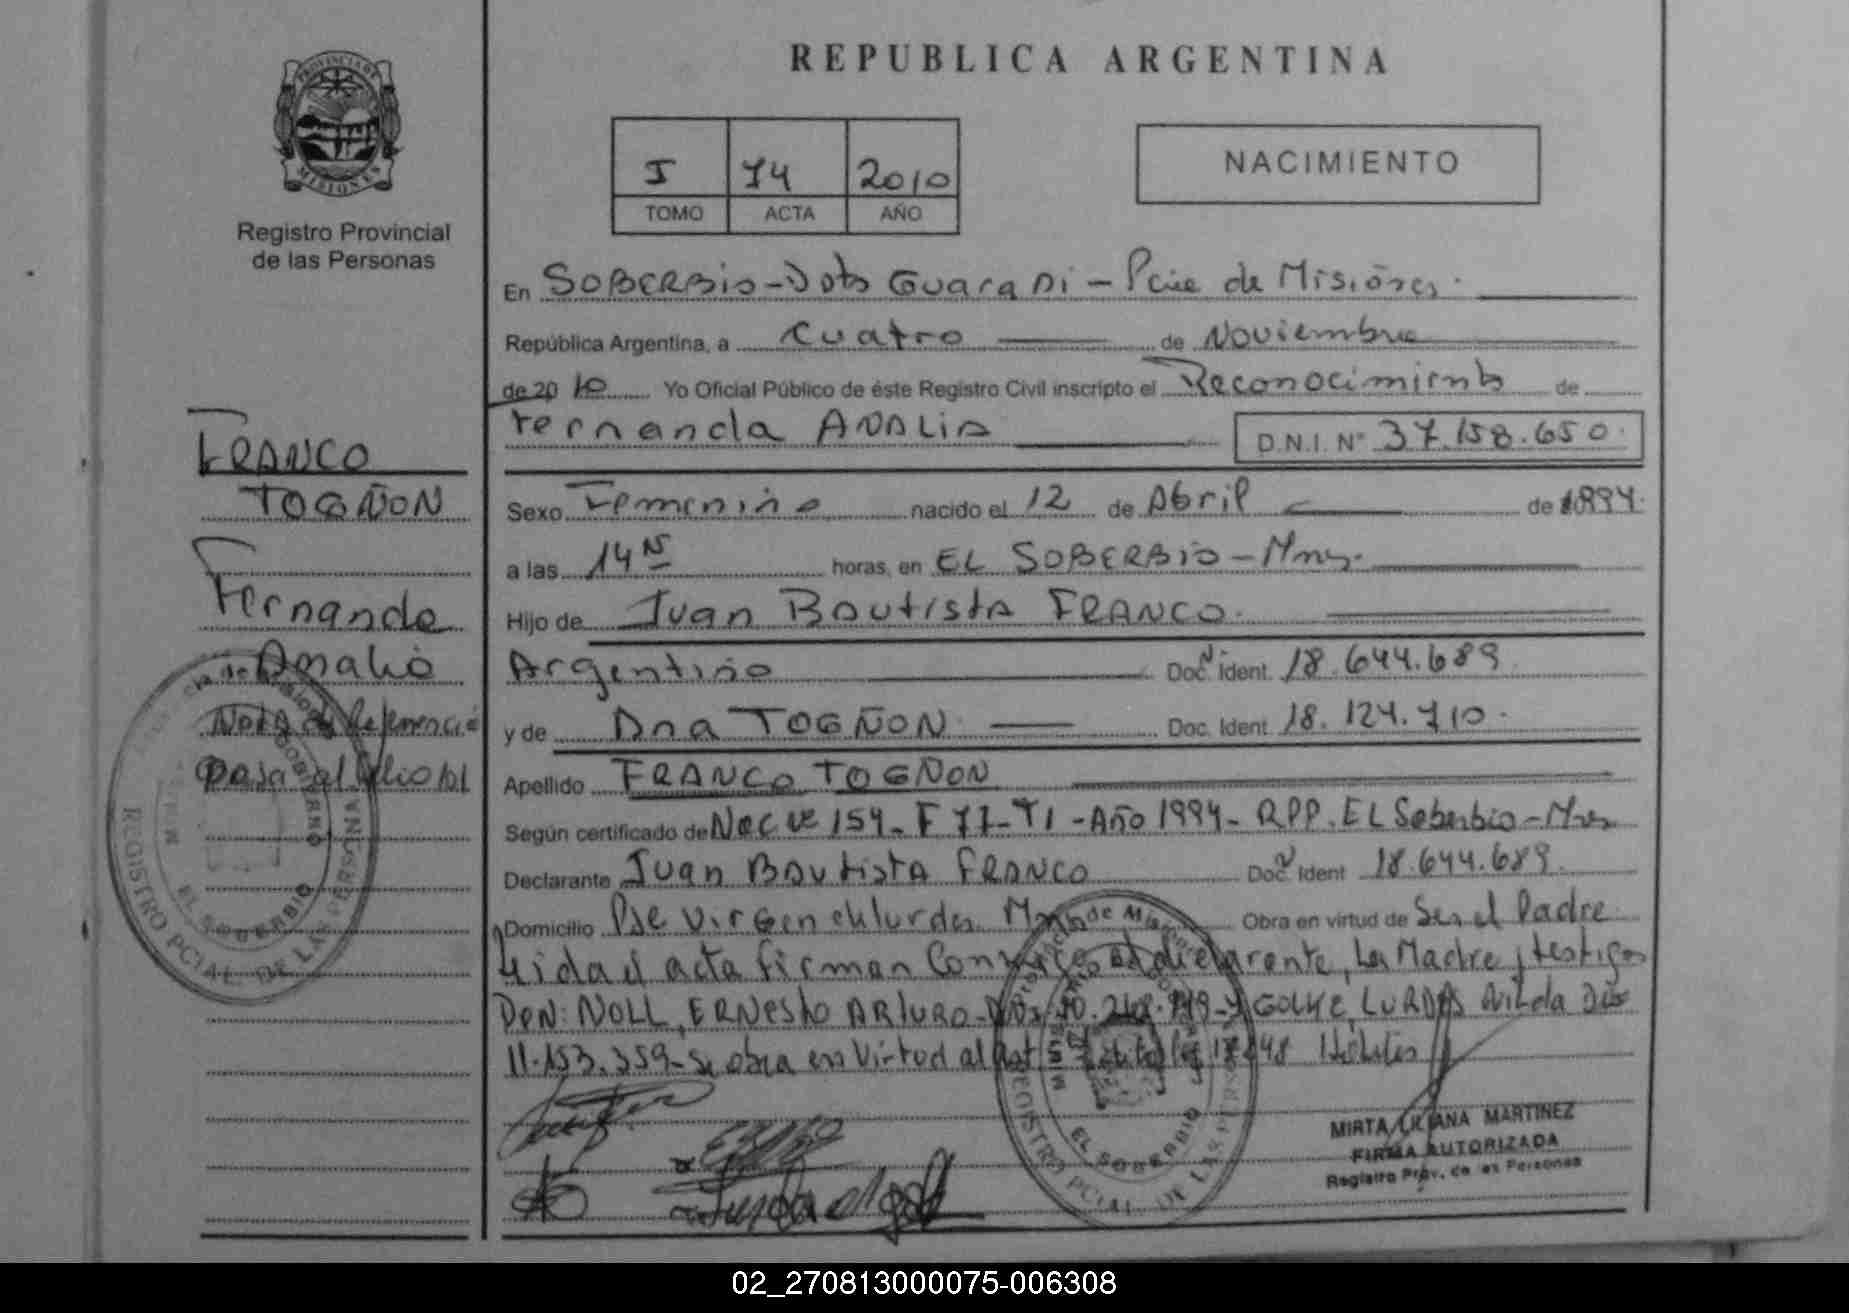 PROVINCIA DE
MISIONES
Registro Provincial
de las Personas
FRANCO
TOGÑON
Fernanda
Analia
Nota de Referencia
Pasa al folio 101
REPUBLICA ARGENTINA
I 74 2010
TOMO ACTA AÑO
NACIMIENTO
En SOBERBIO - Dpto GUARANI - Pcia de Misiones.
República Argentina, a cuatro de Noviembre
de 2010 Yo Oficial Público de éste Registro Civil inscripto el Reconocimiento de
Fernanda ANALIA D.N.I. Nº 37.158.650.
Sexo Femenino nacido el 12 de Abril de 1994.
a las 14 hs horas, en EL SOBERBIO - Mnes.
Hijo de Juan Bautista FRANCO.
Argentino Doc. Ident. 18.644.689
y de Ana TOGÑON. Doc. Ident. 18.124.710.
Apellido FRANCO TOGÑON
Según certificado de Nac Nº 154 - F 77 - T I - Año 1994 - RPP. EL Soberbio - Mnes
Declarante Juan Bautista FRANCO Doc. Ident 18.644.689.
Domicilio Pje Virgen de Lurdes Mnes Obra en virtud de Ser el Padre
Leida el acta firman Conmigo el declarante, La Madre y testigos
Don: NOLL, ERNESTO ARTURO - y LURDES Nilda DNI
11.153.359 - Se obra en Virtud al
MIRTA LILIANA MARTINEZ
FIRMA AUTORIZADA
Registro Prov. de las Personas
REGISTRO PCIAL. DE LAS PERSONAS
EL SOBERBIO
REGISTRO PCIAL. DE LAS PERSONAS
EL SOBERBIO
02_270813000075-006308